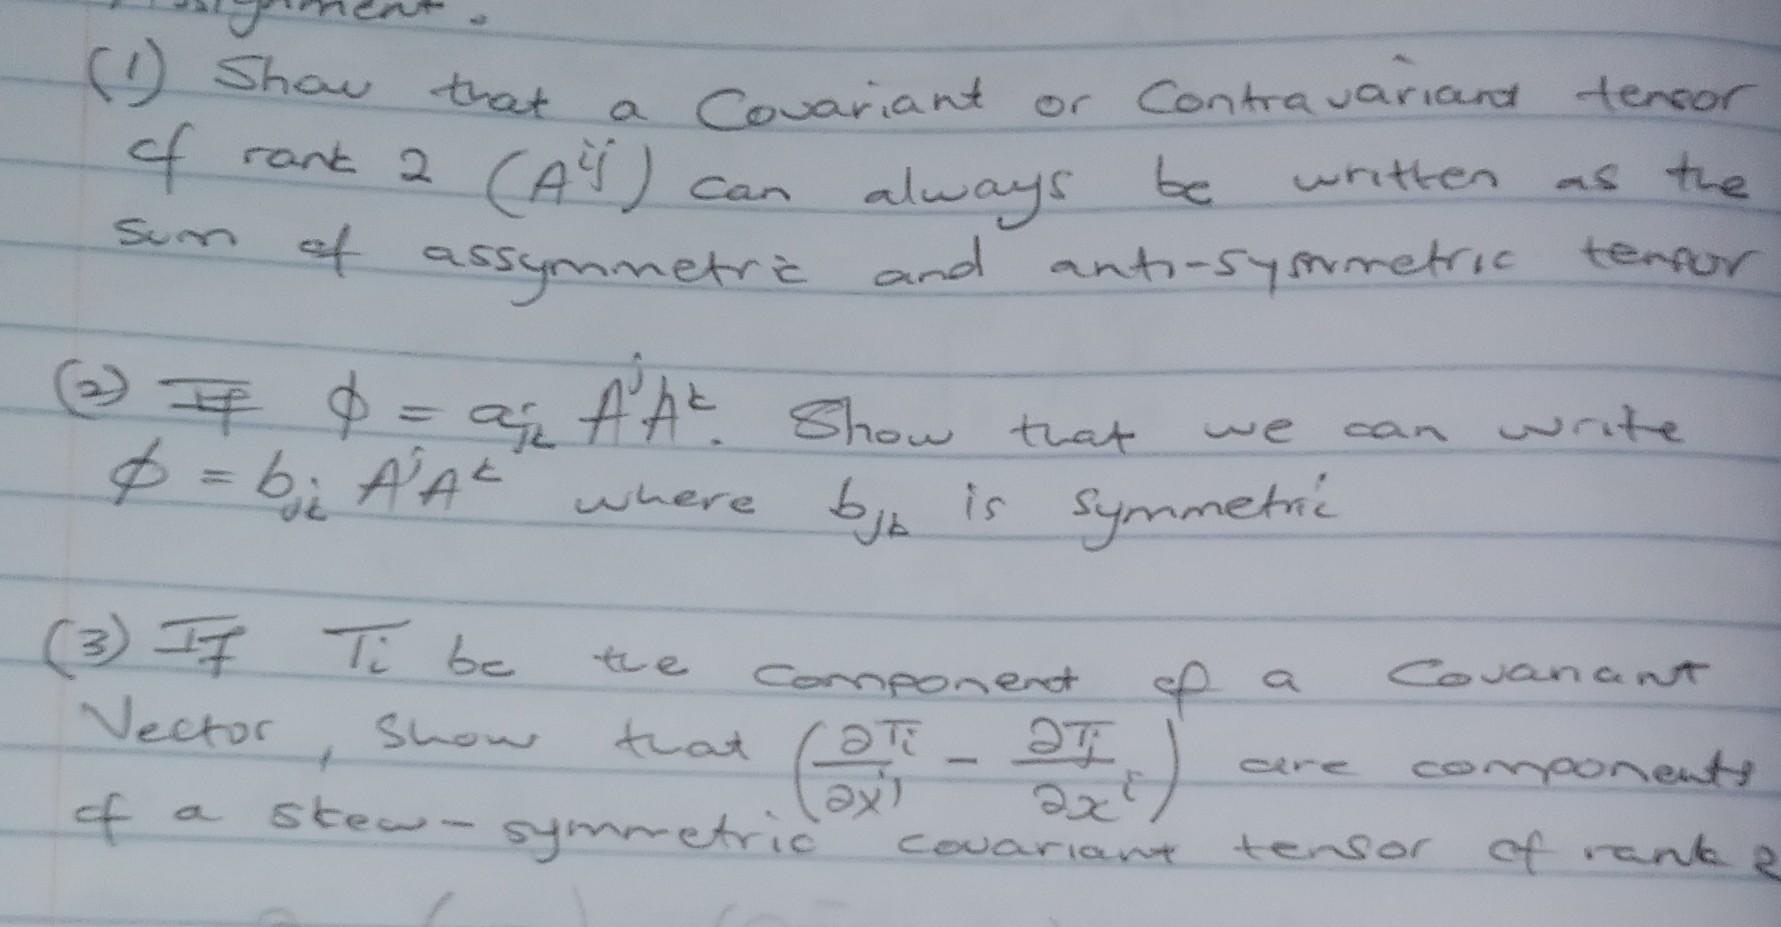 Assignment.
(1) Show that a Covariant or Contravariant tensor
of rank 2 (A^{ij}) can always be written as the
sum of assymmetric and anti-symmetric tensor
(2) If ϕ = a_{jk} A^j A^k. Show that we can write
ϕ = b_{jk} A^j A^k where b_{jk} is symmetric
(3) If T_i be the component of a Covariant
Vector, Show that (∂T_i/∂x^j - ∂T_j/∂x^i) are components
of a skew-symmetric covariant tensor of rank 2